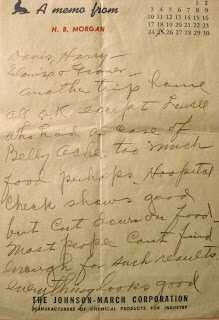 A memo from
H. B. MORGAN
1 2 3
4 5 6 7 8 9 10
11 12 13 14 15 16 17
18 19 20 21 22 23 24
25 26 27 28 29 30 31
Davis, Henry –
Alonzo & Grover –
Another trip home
all O.K. except Lowell
who had a case of
Belly Ache, too much
food perhaps, Hospital
Check shows good
but Cut down on food –
Most people Cant find
enough for such results
everything looks good
THE JOHNSON-MARCH CORPORATION
MANUFACTURERS OF CHEMICAL PRODUCTS FOR INDUSTRY